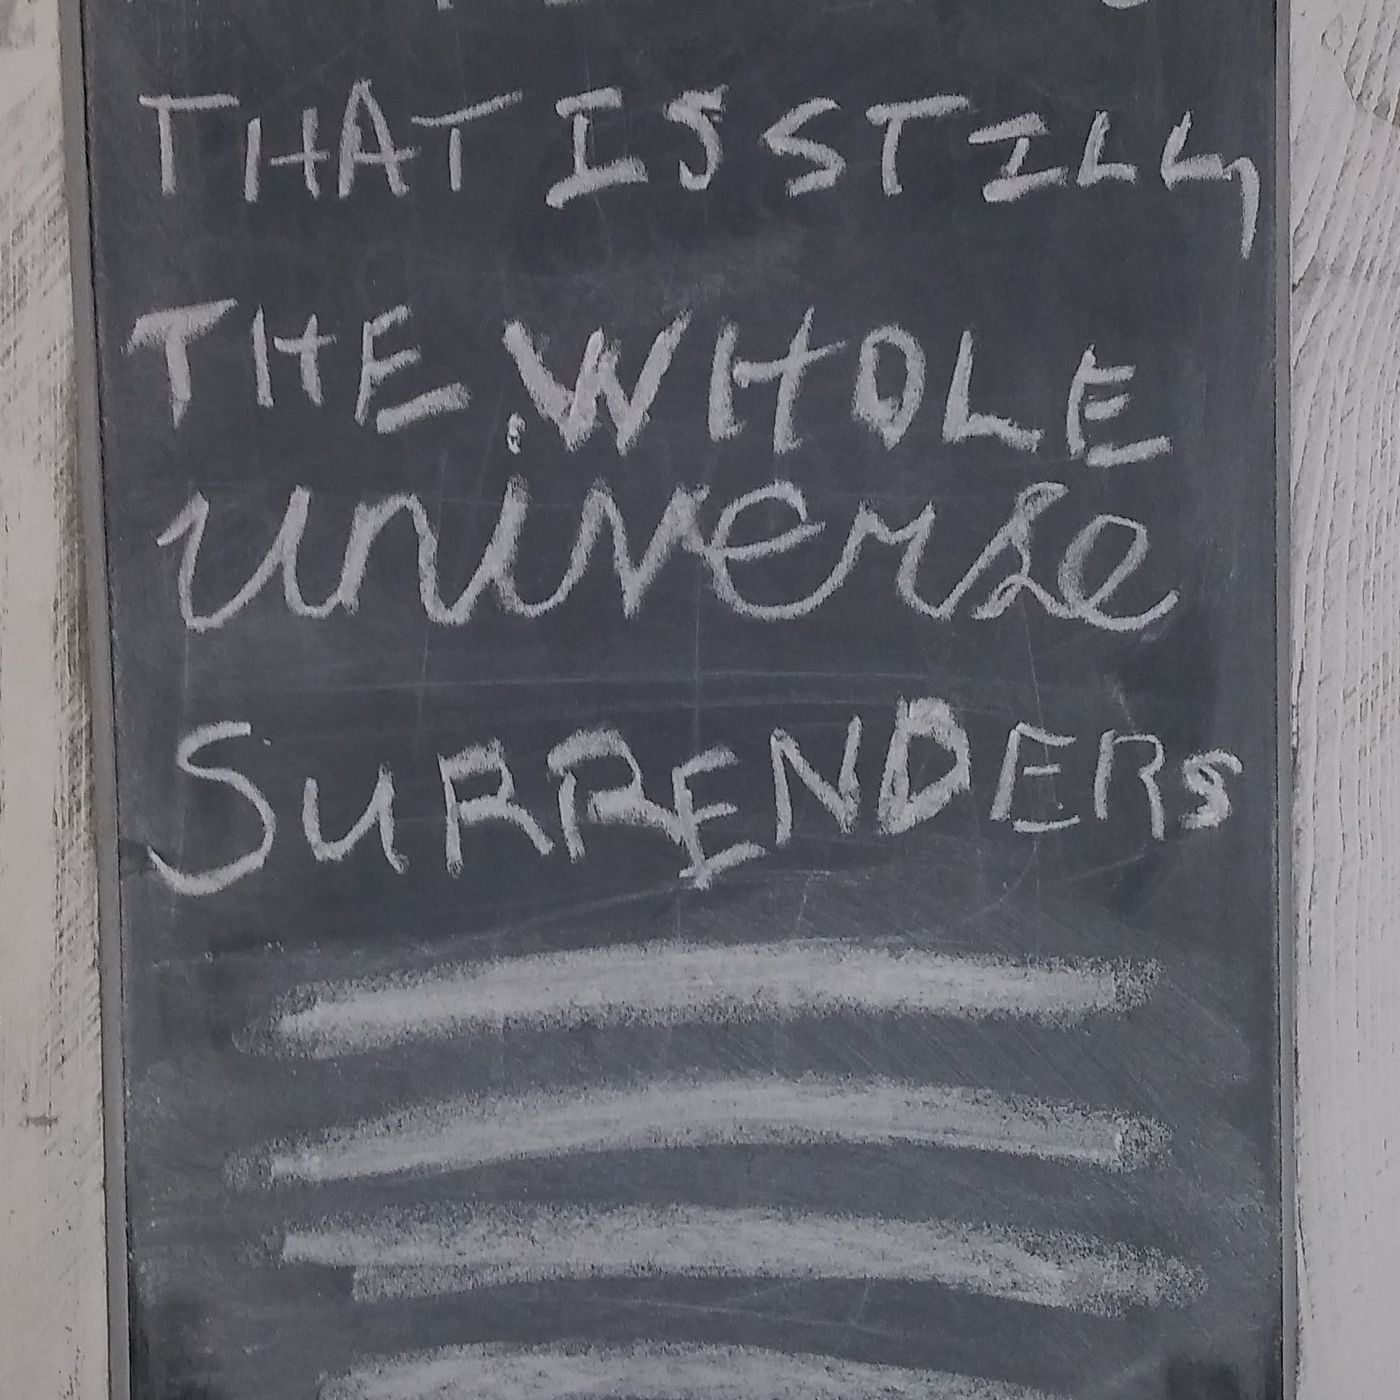 THAT IS STILL,
THE WHOLE
universe
SURRENDERS